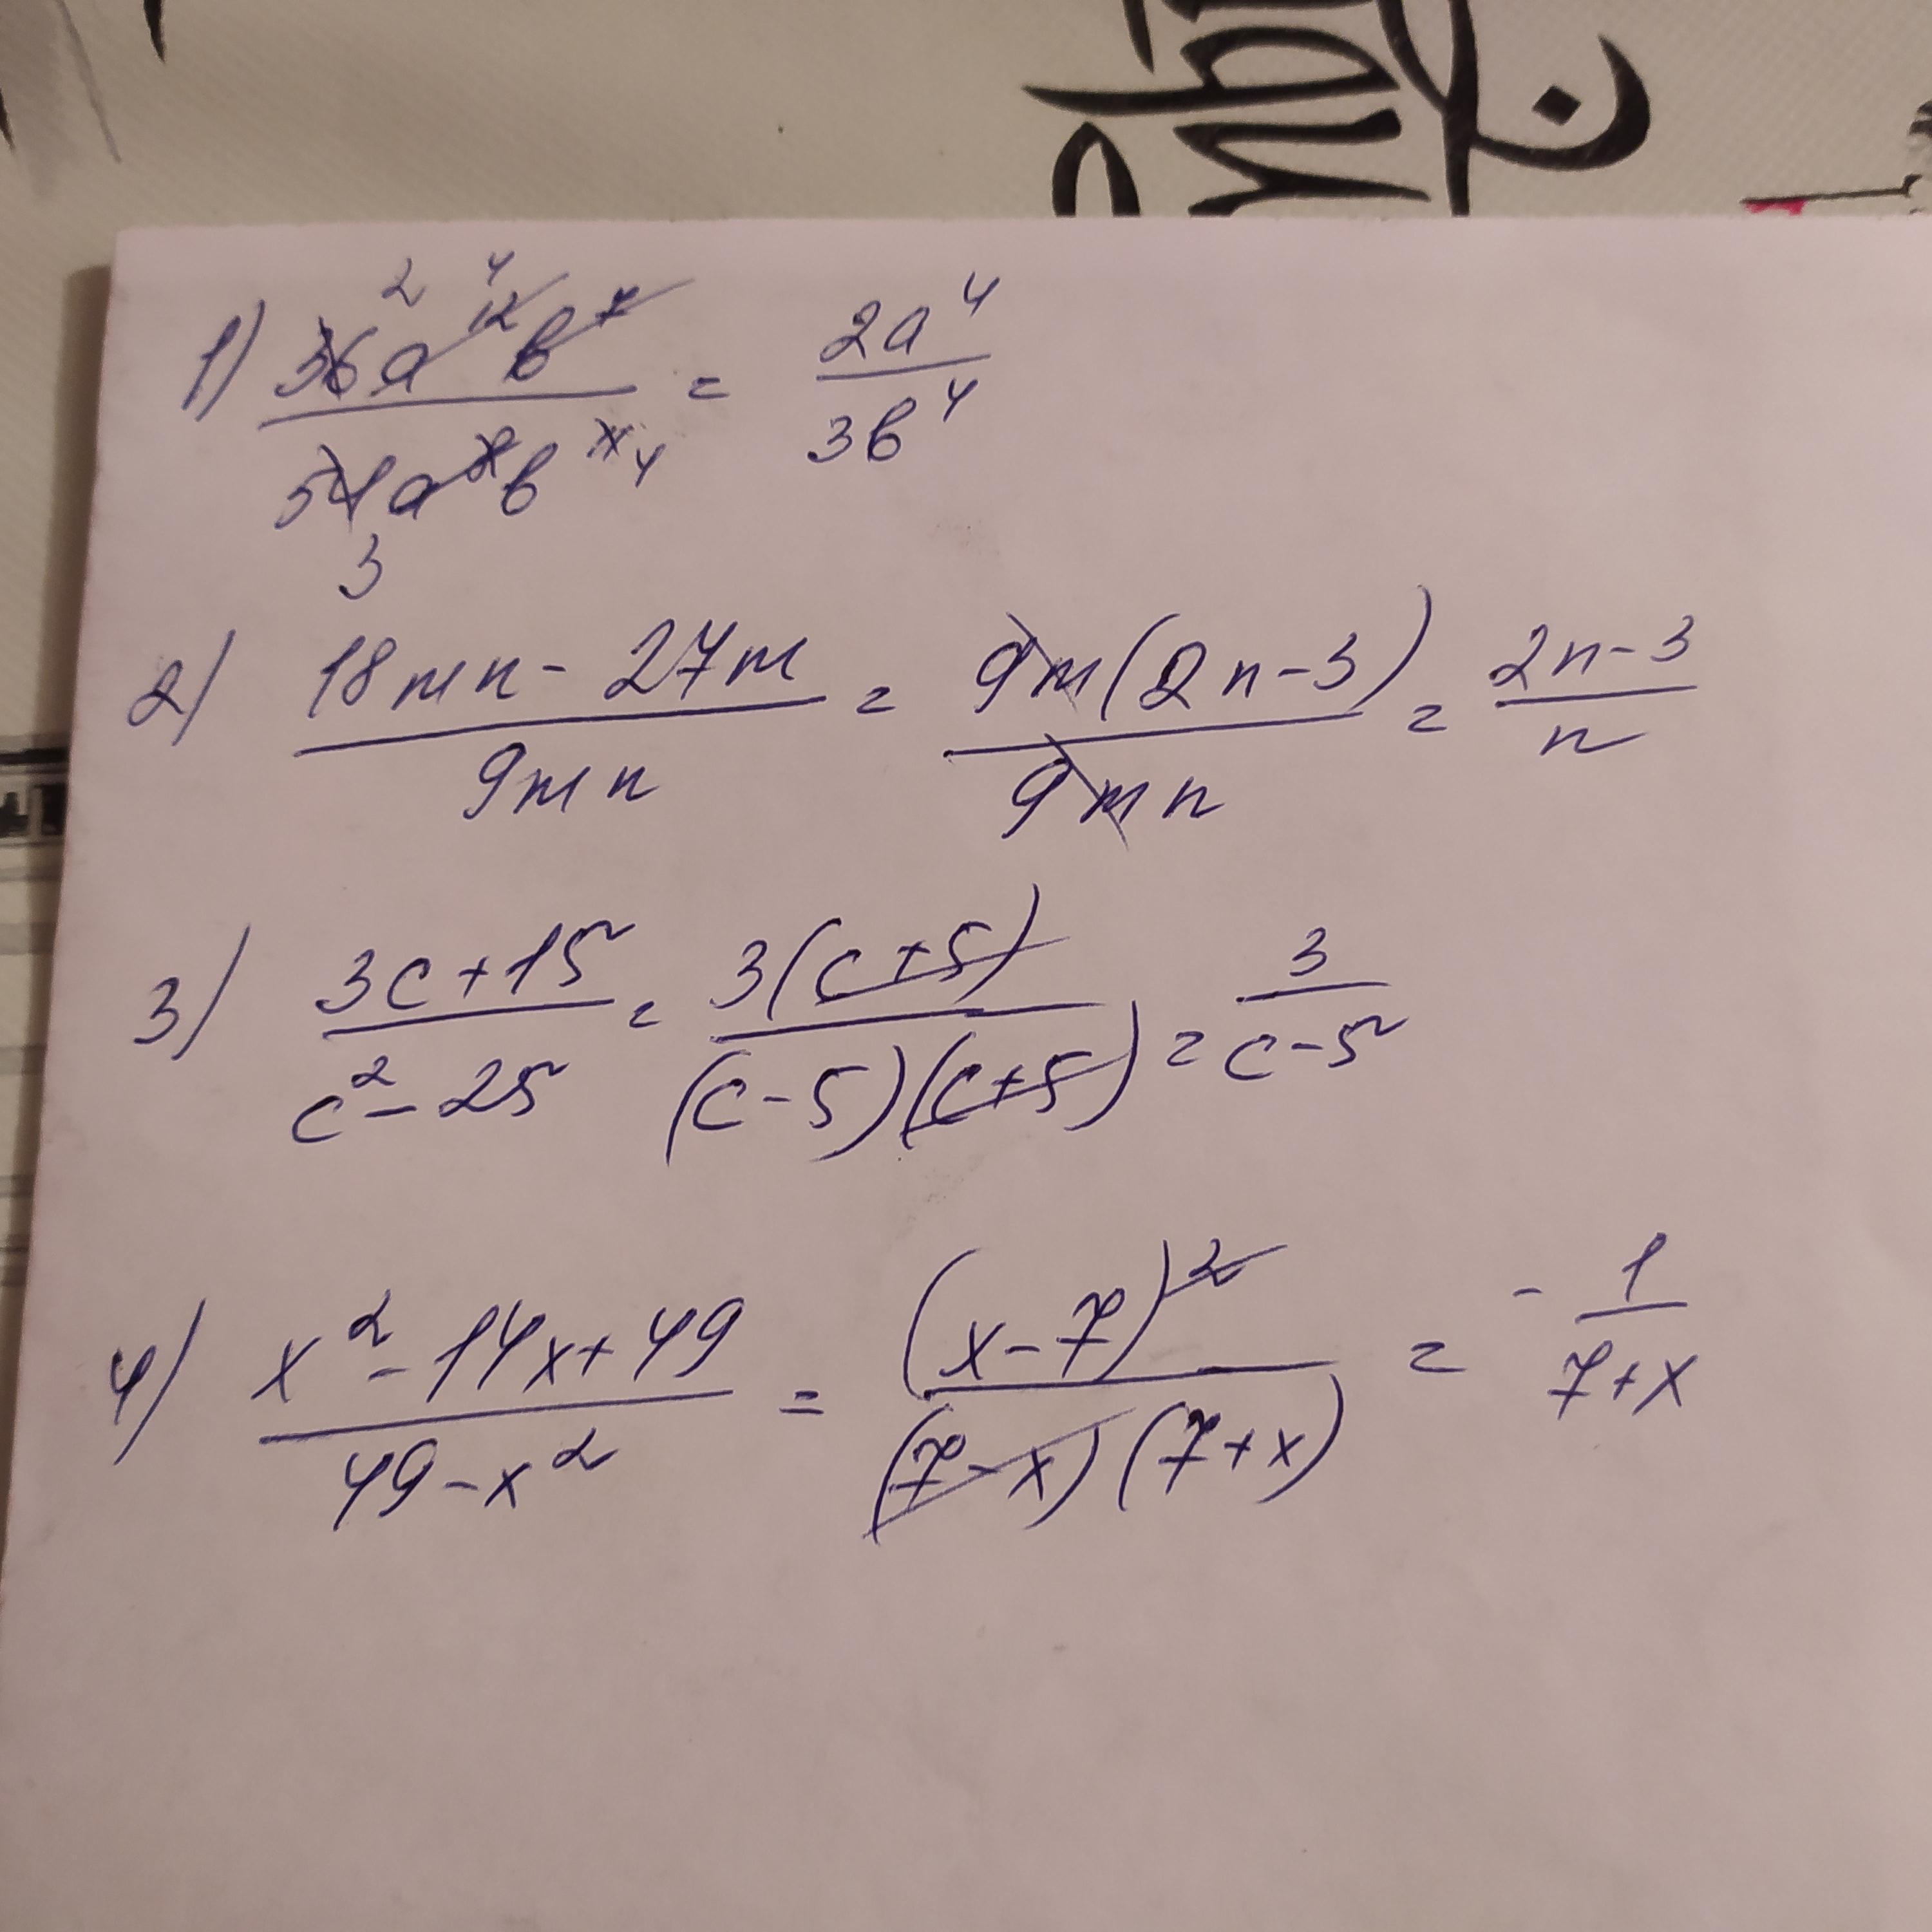 1) 36a¹²b⁷/54a⁸b^x = 2a⁴/3b⁴
2) (18mn - 27m)/9mn = 9m(2n-3)/9mn = (2n-3)/n
3) (3c+15)/(c²-25) = 3(c+5)/(c-5)(c+5) = 3/(c-5)
4) (x²-14x+49)/(49-x²) = (x-7)²/(7-x)(7+x) = -1/(7+x)